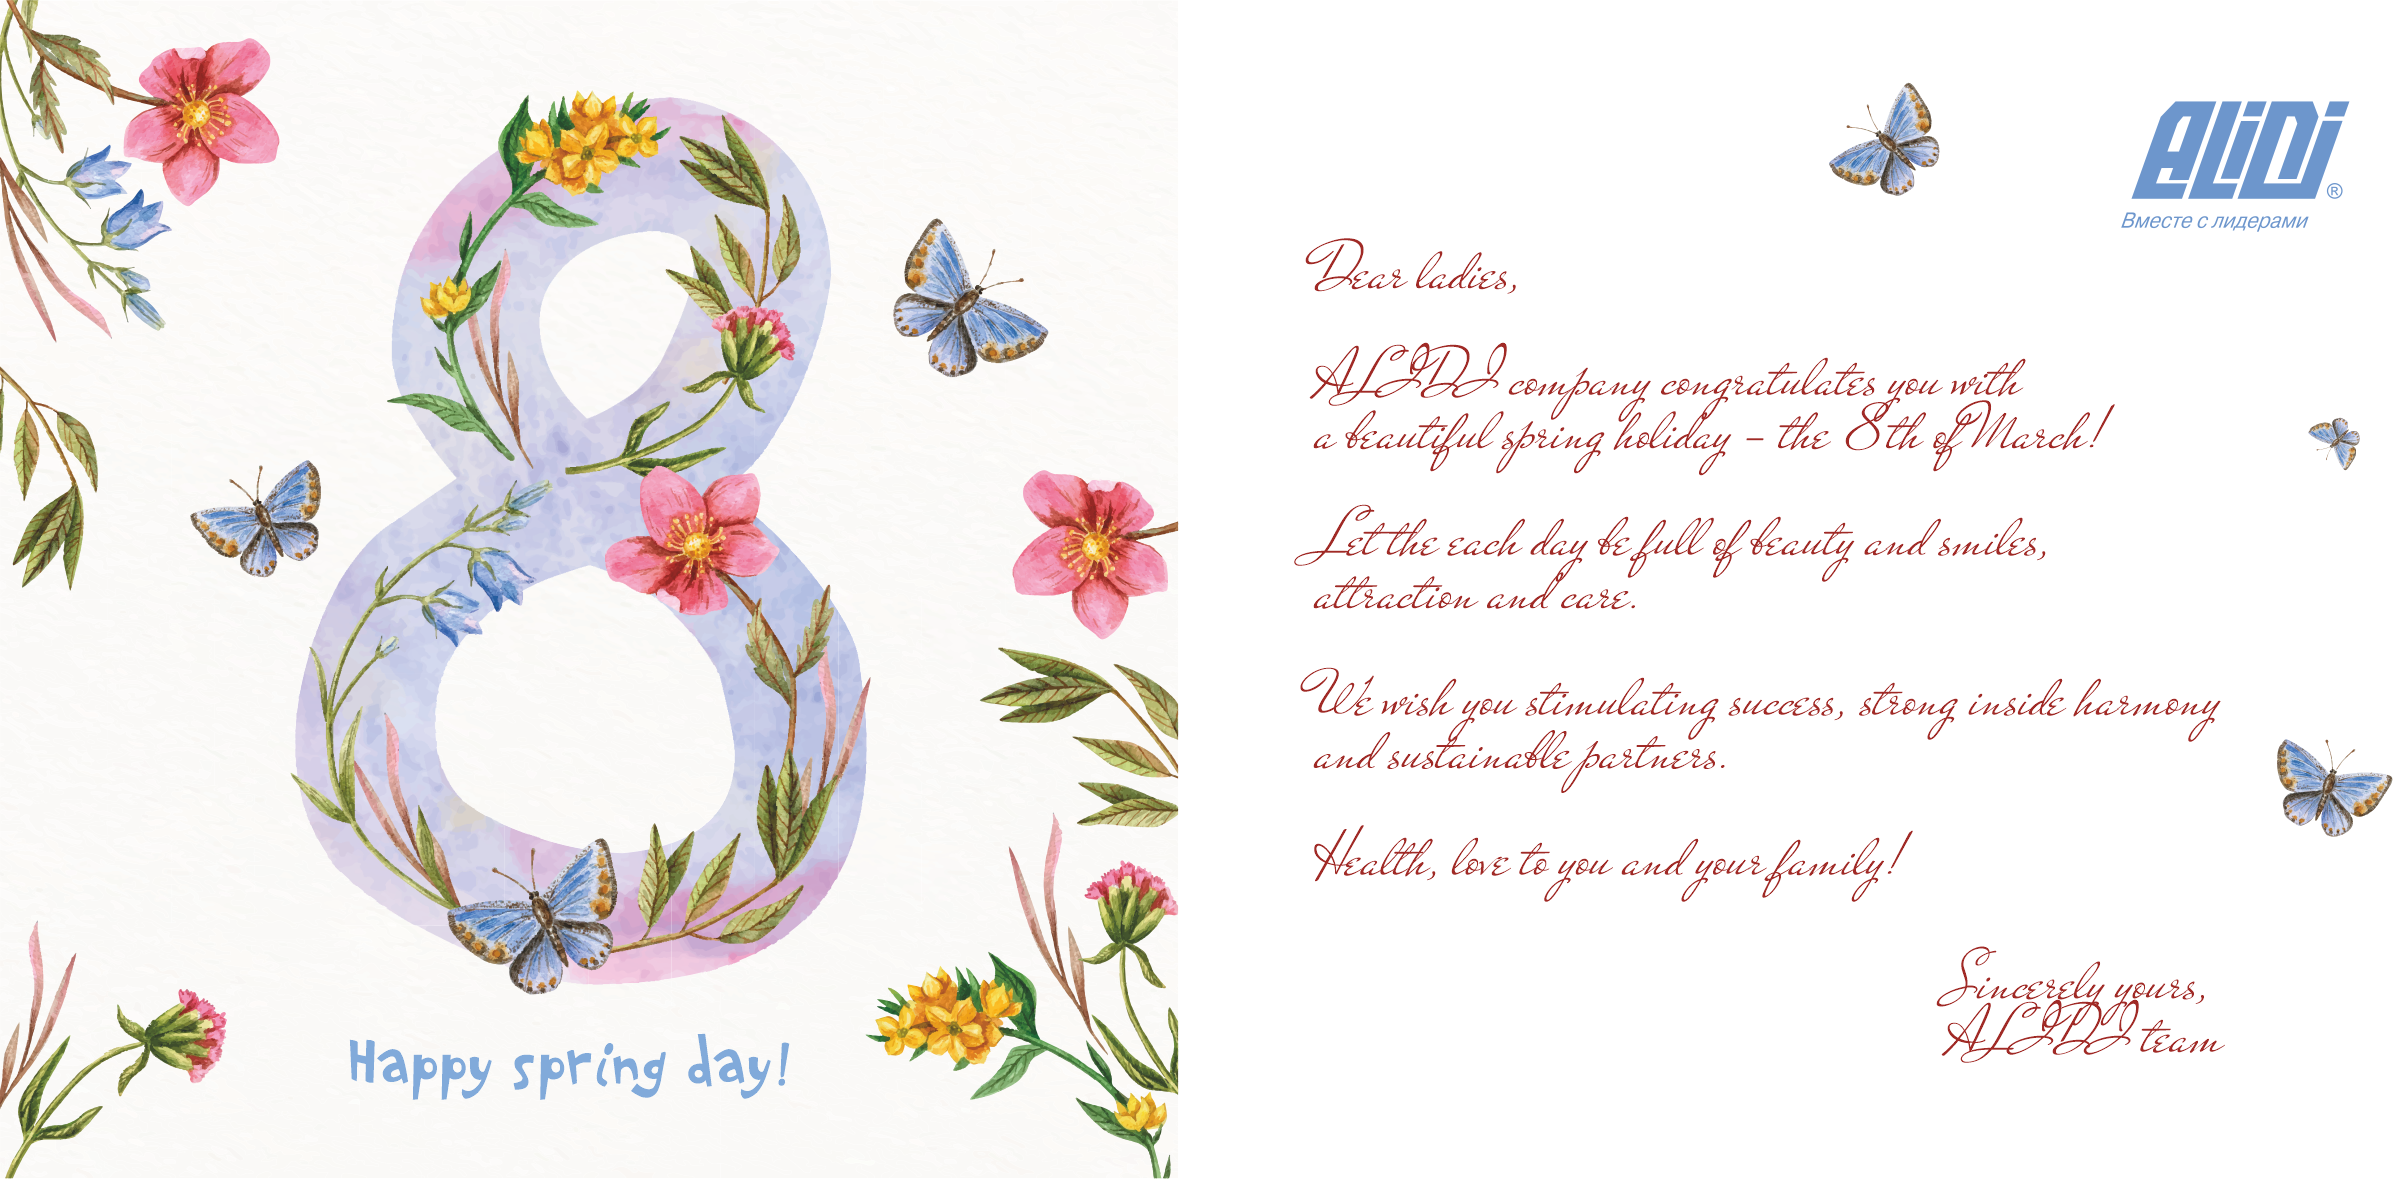 8
Happy spring day!
ALiDi®
Вместе с лидерами
Dear ladies,
ALIDI company congratulates you with
a beautiful spring holiday – the 8th of March!
Let the each day be full of beauty and smiles,
attraction and care.
We wish you stimulating success, strong inside harmony
and sustainable partners.
Health, love to you and your family!
Sincerely yours,
ALIDI team